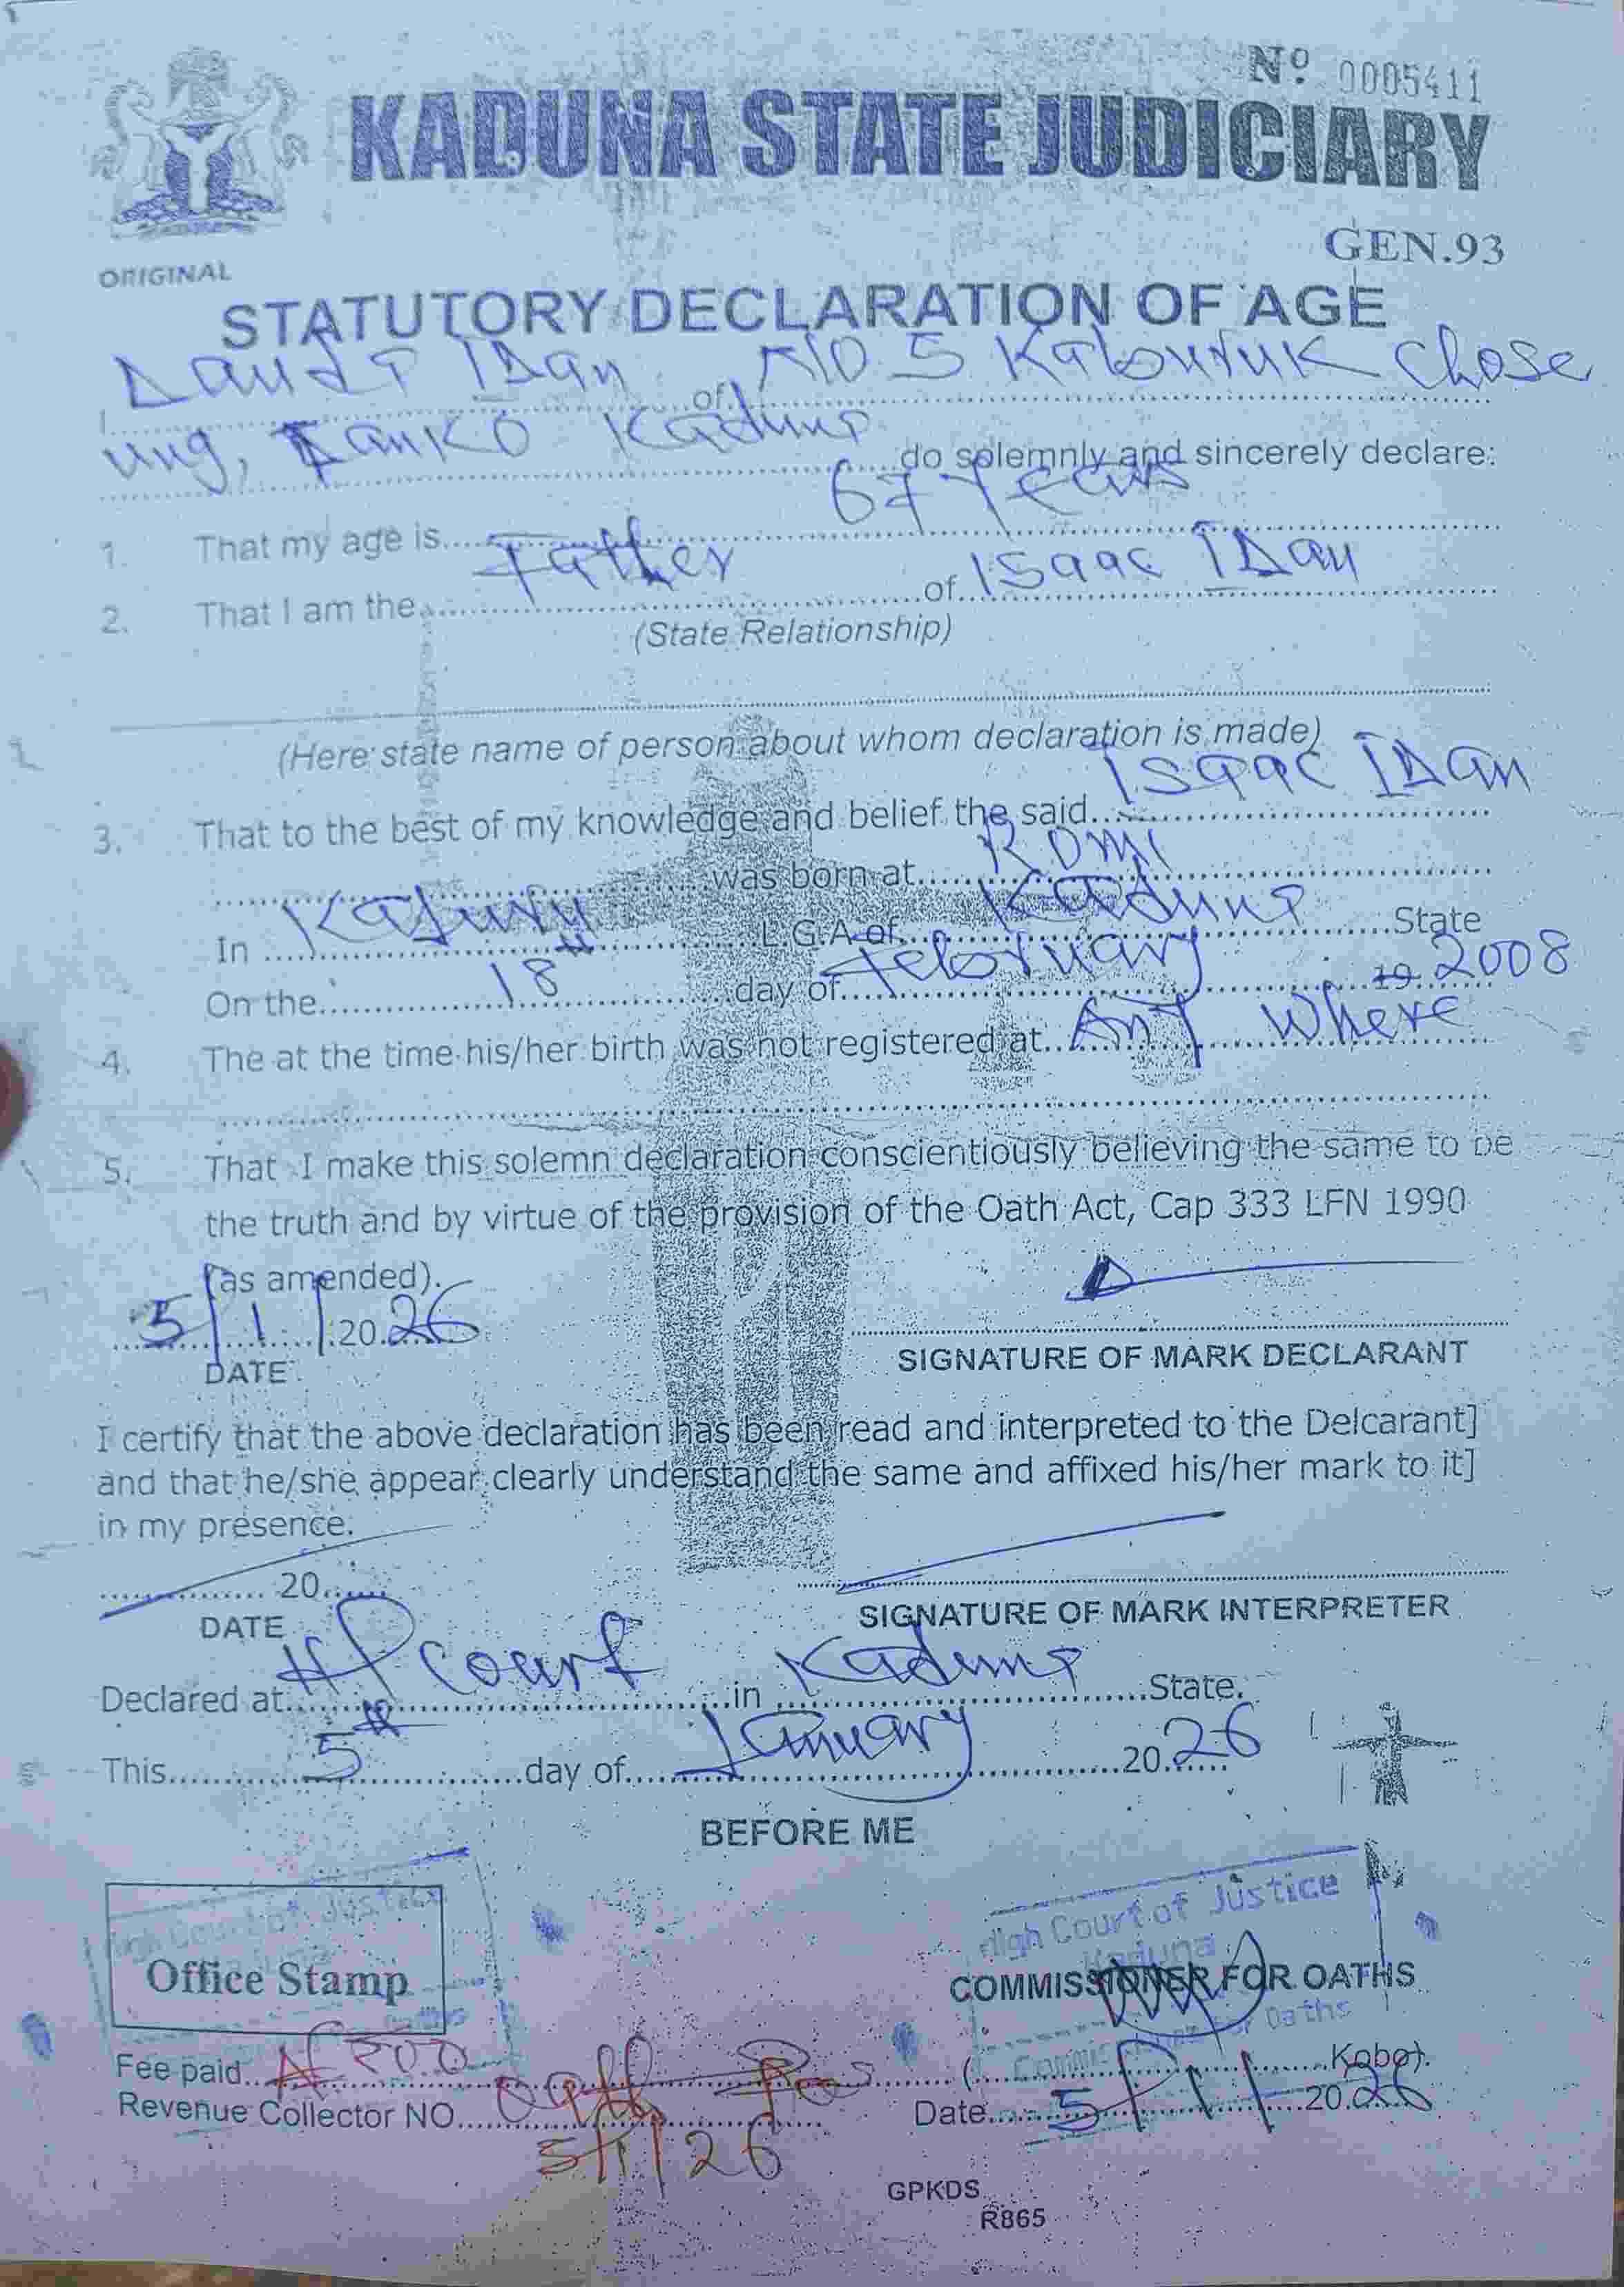 Nº 0005411
KADUNA STATE JUDICIARY
GEN.93
ORIGINAL
STATUTORY DECLARATION OF AGE
I Idan of No 5 Chose
ung, Kaduna do solemnly and sincerely declare:
1. That my age is 67 Years
2. That I am the Father of Isaac Idan
(State Relationship)
(Here state name of person about whom declaration is made)
3. That to the best of my knowledge and belief the said Isaac Idan
was born at Romi
In L.G.A of Kaduna State
On the 18th day of February 19 2008
4. The at the time his/her birth was not registered at Any where
5. That I make this solemn declaration conscientiously believing the same to be
the truth and by virtue of the provision of the Oath Act, Cap 333 LFN 1990
(as amended).
5/1/2026
DATE
SIGNATURE OF MARK DECLARANT
I certify that the above declaration has been read and interpreted to the Delcarant]
and that he/she appear clearly understand the same and affixed his/her mark to it]
in my presence.
20
DATE
SIGNATURE OF MARK INTERPRETER
Declared at Court in Kaduna State.
This 5th day of January 2026
BEFORE ME
High Court of Justice
High Court of Justice
Kaduna
Office Stamp
COMMISSIONER FOR OATHS
Oaths
Fee paid ( Kobo).
Revenue Collector NO Date 5/1/2026
5/1/26
GPKDS
R865